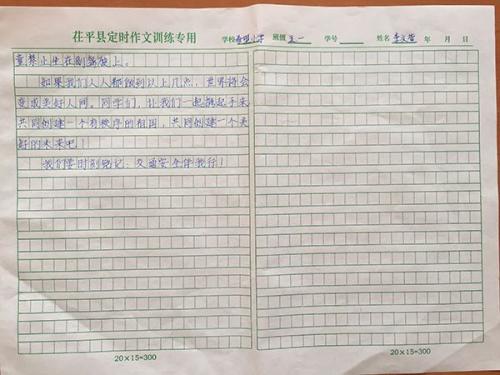 茌平县定时作文训练专用
学校 希望小学 班级 五一 学号 姓名 李文 年 月 日
童禁止坐在副驾驶上。
如果我们人人都做到以上几点,世界将会
变成美好人间。同学们,让我们一起携起手来
共同创建一个有秩序的祖国,共同创建一个美
好的未来吧!
我们要时刻铭记:交通安全伴我行!
20×15=300
20×15=300